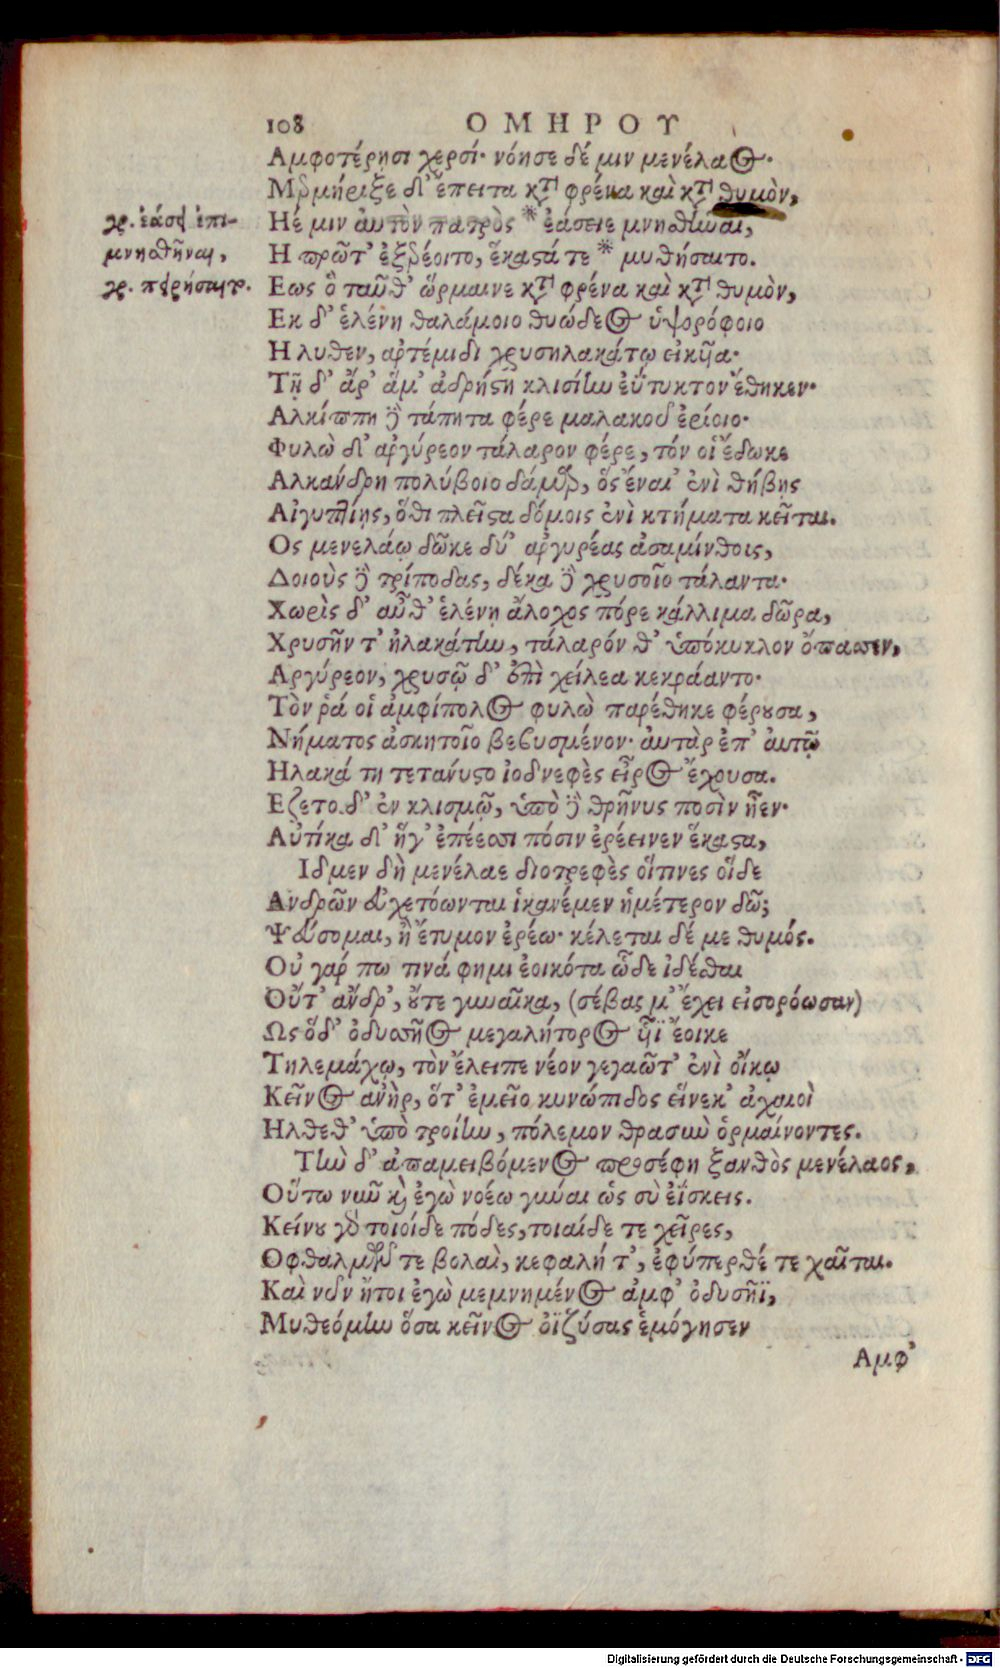 108 ΟΜΗΡΟΥ
Αμφοτέρῃσι χερσί· νόησε δέ μιν μενέλαος·
Μερμήριξε δ' ἔπειτα κατὰ φρένα καὶ κατὰ θυμὸν,
γρ. ἐάσει ἐπι-
Ηέ μιν ἀυτὸν πατρὸς * ἐάσειε μνησθῆναι,
μνησθῆναι,
Η πρῶτ' ἐξερέοιτο, ἕκαστά τε * μυθήσαιτο.
γρ. πειρήσαιτο.
Εως ὃ ταῦθ' ὥρμαινε κατὰ φρένα καὶ κατὰ θυμὸν,
Εκ δ' ἑλένη θαλάμοιο θυώδεος ὑψορόφοιο
Ηλυθεν, αρτέμιδι χρυσηλακάτῳ εἰκυῖα·
Τῇ δ' ἄρ' ἅμ' ἀδρήστη κλισίην ἐύτυκτον ἔθηκεν·
Αλκίππη δὲ τάπητα φέρε μαλακοῦ ἐρίοιο·
Φυλὼ δ' αργύρεον τάλαρον φέρε, τόν οἱ ἔδωκε
Αλκάνδρη πολύβοιο δάμαρ, ὃς ἔναι' ἐνὶ θήβης
Αἰγυπτίης, ὅθι πλεῖστα δόμοις ἐνὶ κτήματα κεῖται.
Ος μενελάῳ δῶκε δύ' αργυρέας ἀσαμίνθοις,
Δοιοὺς δὲ τρίποδας, δέκα δὲ χρυσοῖο τάλαντα·
Χωρὶς δ' αὖθ' ἑλένῃ ἄλοχος πόρε κάλλιμα δῶρα,
Χρυσῆν τ' ἠλακάτην, τάλαρόν θ' ὑπόκυκλον ὄπασσεν,
Αργύρεον, χρυσῷ δ' ἐπὶ χείλεα κεκράαντο·
Τὸν ῥά οἱ ἀμφίπολος φυλὼ παρέθηκε φέρουσα,
Νήματος ἀσκητοῖο βεβυσμένον· ἀυτὰρ ἐπ' ἀυτῷ
Ηλακά τη τετάνυστο ἰοδνεφὲς εἶρος ἔχουσα.
Εζετο δ' ἐν κλισμῷ, ὑπὸ δὲ θρῆνυς ποσὶν ἦεν·
Αὐτίκα δ' ἥγ' ἐπέεσσι πόσιν ἐρέεινεν ἕκαστα,
Ιδμεν δὴ μενέλαε διοτρεφὲς οἵτινες οἵδε
Ανδρῶν εὐχετόωνται ἱκανέμεν ἡμέτερον δῶ;
Ψεύσομαι, ἢ ἔτυμον ἐρέω· κέλεται δέ με θυμός.
Οὐ γάρ πω τινά φημι ἐοικότα ὧδε ἰδέσθαι
Οὔτ' ἄνδρ', οὔτε γυναῖκα, (σέβας μ' ἔχει εἰσορόωσαν)
Ως ὅδ' ὀδυσσῆος μεγαλήτορος υἷϊ ἔοικε
Τηλεμάχῳ, τὸν ἔλειπε νέον γεγαῶτ' ἐνὶ οἴκῳ
Κεῖνος ανὴρ, ὅτ' ἐμεῖο κυνώπιδος εἵνεκ' ἀχαιοὶ
Ηλθεθ' ὑπὸ τροίην, πόλεμον θρασὺν ὁρμαίνοντες.
Τὴν δ' ἀπαμειβόμενος προσέφη ξανθὸς μενέλαος,
Οὕτω νῦν καὶ ἐγὼ νοέω γύναι ὡς σὺ ἐΐσκεις.
Κείνου γὰρ τοιοίδε πόδες, τοιαίδε τε χεῖρες,
Οφθαλμῶν τε βολαὶ, κεφαλή τ', ἐφύπερθέ τε χαῖται.
Καὶ νῦν ἤτοι ἐγὼ μεμνημένος ἀμφ' ὀδυσῆϊ,
Μυθεόμην ὅσα κεῖνος ὀϊζύσας ἐμόγησεν
Αμφ'
Digitalisierung gefördert durch die Deutsche Forschungsgemeinschaft - DFG